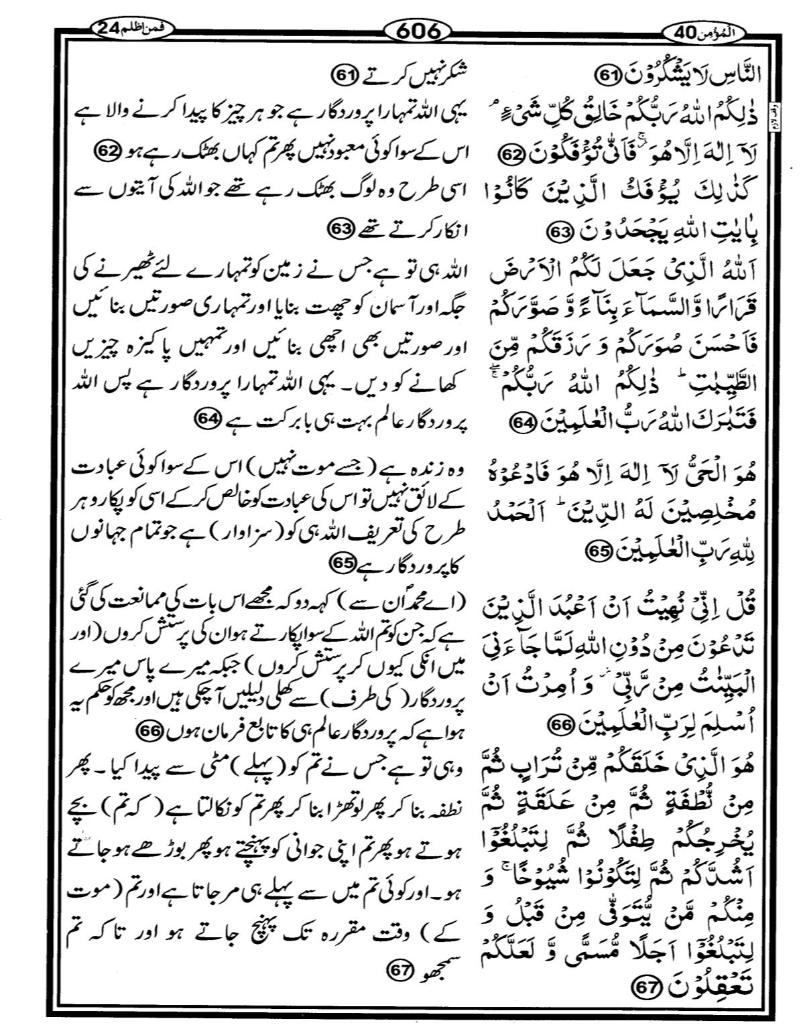 المؤمن 40
606
فمن اظلم 24
وقف لازم
النَّاسِ لَا يَشْكُرُوْنَ 61
ذٰلِكُمُ اللّٰهُ رَبُّكُمْ خَالِقُ كُلِّ شَيْءٍ ۘ
لَآ اِلٰهَ اِلَّا هُوَ ۚ فَاَنّٰى تُؤْفَكُوْنَ 62
كَذٰلِكَ يُؤْفَكُ الَّذِيْنَ كَانُوْا
بِاٰيٰتِ اللّٰهِ يَجْحَدُوْنَ 63
اَللّٰهُ الَّذِيْ جَعَلَ لَكُمُ الْاَرْضَ
قَرَارًا وَّالسَّمَآءَ بِنَآءً وَّ صَوَّرَكُمْ
فَاَحْسَنَ صُوَرَكُمْ وَ رَزَقَكُمْ مِّنَ
الطَّيِّبٰتِ ؕ ذٰلِكُمُ اللّٰهُ رَبُّكُمْ ۚۖ
فَتَبٰرَكَ اللّٰهُ رَبُّ الْعٰلَمِيْنَ 64
هُوَ الْحَيُّ لَآ اِلٰهَ اِلَّا هُوَ فَادْعُوْهُ
مُخْلِصِيْنَ لَهُ الدِّيْنَ ؕ اَلْحَمْدُ
لِلّٰهِ رَبِّ الْعٰلَمِيْنَ 65
قُلْ اِنِّيْ نُهِيْتُ اَنْ اَعْبُدَ الَّذِيْنَ
تَدْعُوْنَ مِنْ دُوْنِ اللّٰهِ لَمَّا جَآءَنِيَ
الْبَيِّنٰتُ مِنْ رَّبِّيْ ۫ وَ اُمِرْتُ اَنْ
اُسْلِمَ لِرَبِّ الْعٰلَمِيْنَ 66
هُوَ الَّذِيْ خَلَقَكُمْ مِّنْ تُرَابٍ ثُمَّ
مِنْ نُّطْفَةٍ ثُمَّ مِنْ عَلَقَةٍ ثُمَّ
يُخْرِجُكُمْ طِفْلًا ثُمَّ لِتَبْلُغُوْٓا
اَشُدَّكُمْ ثُمَّ لِتَكُوْنُوْا شُيُوْخًا ۚ وَ
مِنْكُمْ مَّنْ يُّتَوَفّٰى مِنْ قَبْلُ وَ
لِتَبْلُغُوْٓا اَجَلًا مُّسَمًّى وَّ لَعَلَّكُمْ
تَعْقِلُوْنَ 67
شکر نہیں کرتے 61
یہی اللہ تمہارا پروردگار ہے جو ہر چیز کا پیدا کرنے والا ہے
اس کے سوا کوئی معبود نہیں پھر تم کہاں بھٹک رہے ہو 62
اسی طرح وہ لوگ بھٹک رہے تھے جو اللہ کی آیتوں سے
انکار کرتے تھے 63
اللہ ہی تو ہے جس نے زمین کو تمہارے لئے ٹھیرنے کی
جگہ اور آسمان کو چھت بنایا اور تمہاری صورتیں بنائیں
اور صورتیں بھی اچھی بنائیں اور تمہیں پاکیزہ چیزیں
کھانے کو دیں۔ یہی اللہ تمہارا پروردگار ہے پس اللہ
پروردگار عالم بہت ہی بابرکت ہے 64
وہ زندہ ہے (جسے موت نہیں) اس کے سوا کوئی عبادت
کے لائق نہیں تو اس کی عبادت کو خالص کر کے اسی کو پکارو ہر
طرح کی تعریف اللہ ہی کو (سزاوار) ہے جو تمام جہانوں
کا پروردگار ہے 65
(اے محمدؐ ان سے) کہہ دو کہ مجھے اس بات کی ممانعت کی گئی
ہے کہ جن کو تم اللہ کے سوا پکارتے ہو ان کی پرستش کروں (اور
میں انکی کیوں کر پرستش کروں) جبکہ میرے پاس میرے
پروردگار (کی طرف) سے کھلی دلیلیں آ چکی ہیں اور مجھ کو حکم یہ
ہوا ہے کہ پروردگار عالم ہی کا تابع فرمان ہوں 66
وہی تو ہے جس نے تم کو (پہلے) مٹی سے پیدا کیا۔ پھر
نطفہ بنا کر پھر لوتھڑا بنا کر پھر تم کو نکالتا ہے (کہ تم) بچے
ہوتے ہو پھر تم اپنی جوانی کو پہنچتے ہو پھر بوڑھے ہو جاتے
ہو۔ اور کوئی تم میں سے پہلے ہی مر جاتا ہے اور تم (موت
کے) وقت مقررہ تک پہنچ جاتے ہو اور تا کہ تم
سمجھو 67